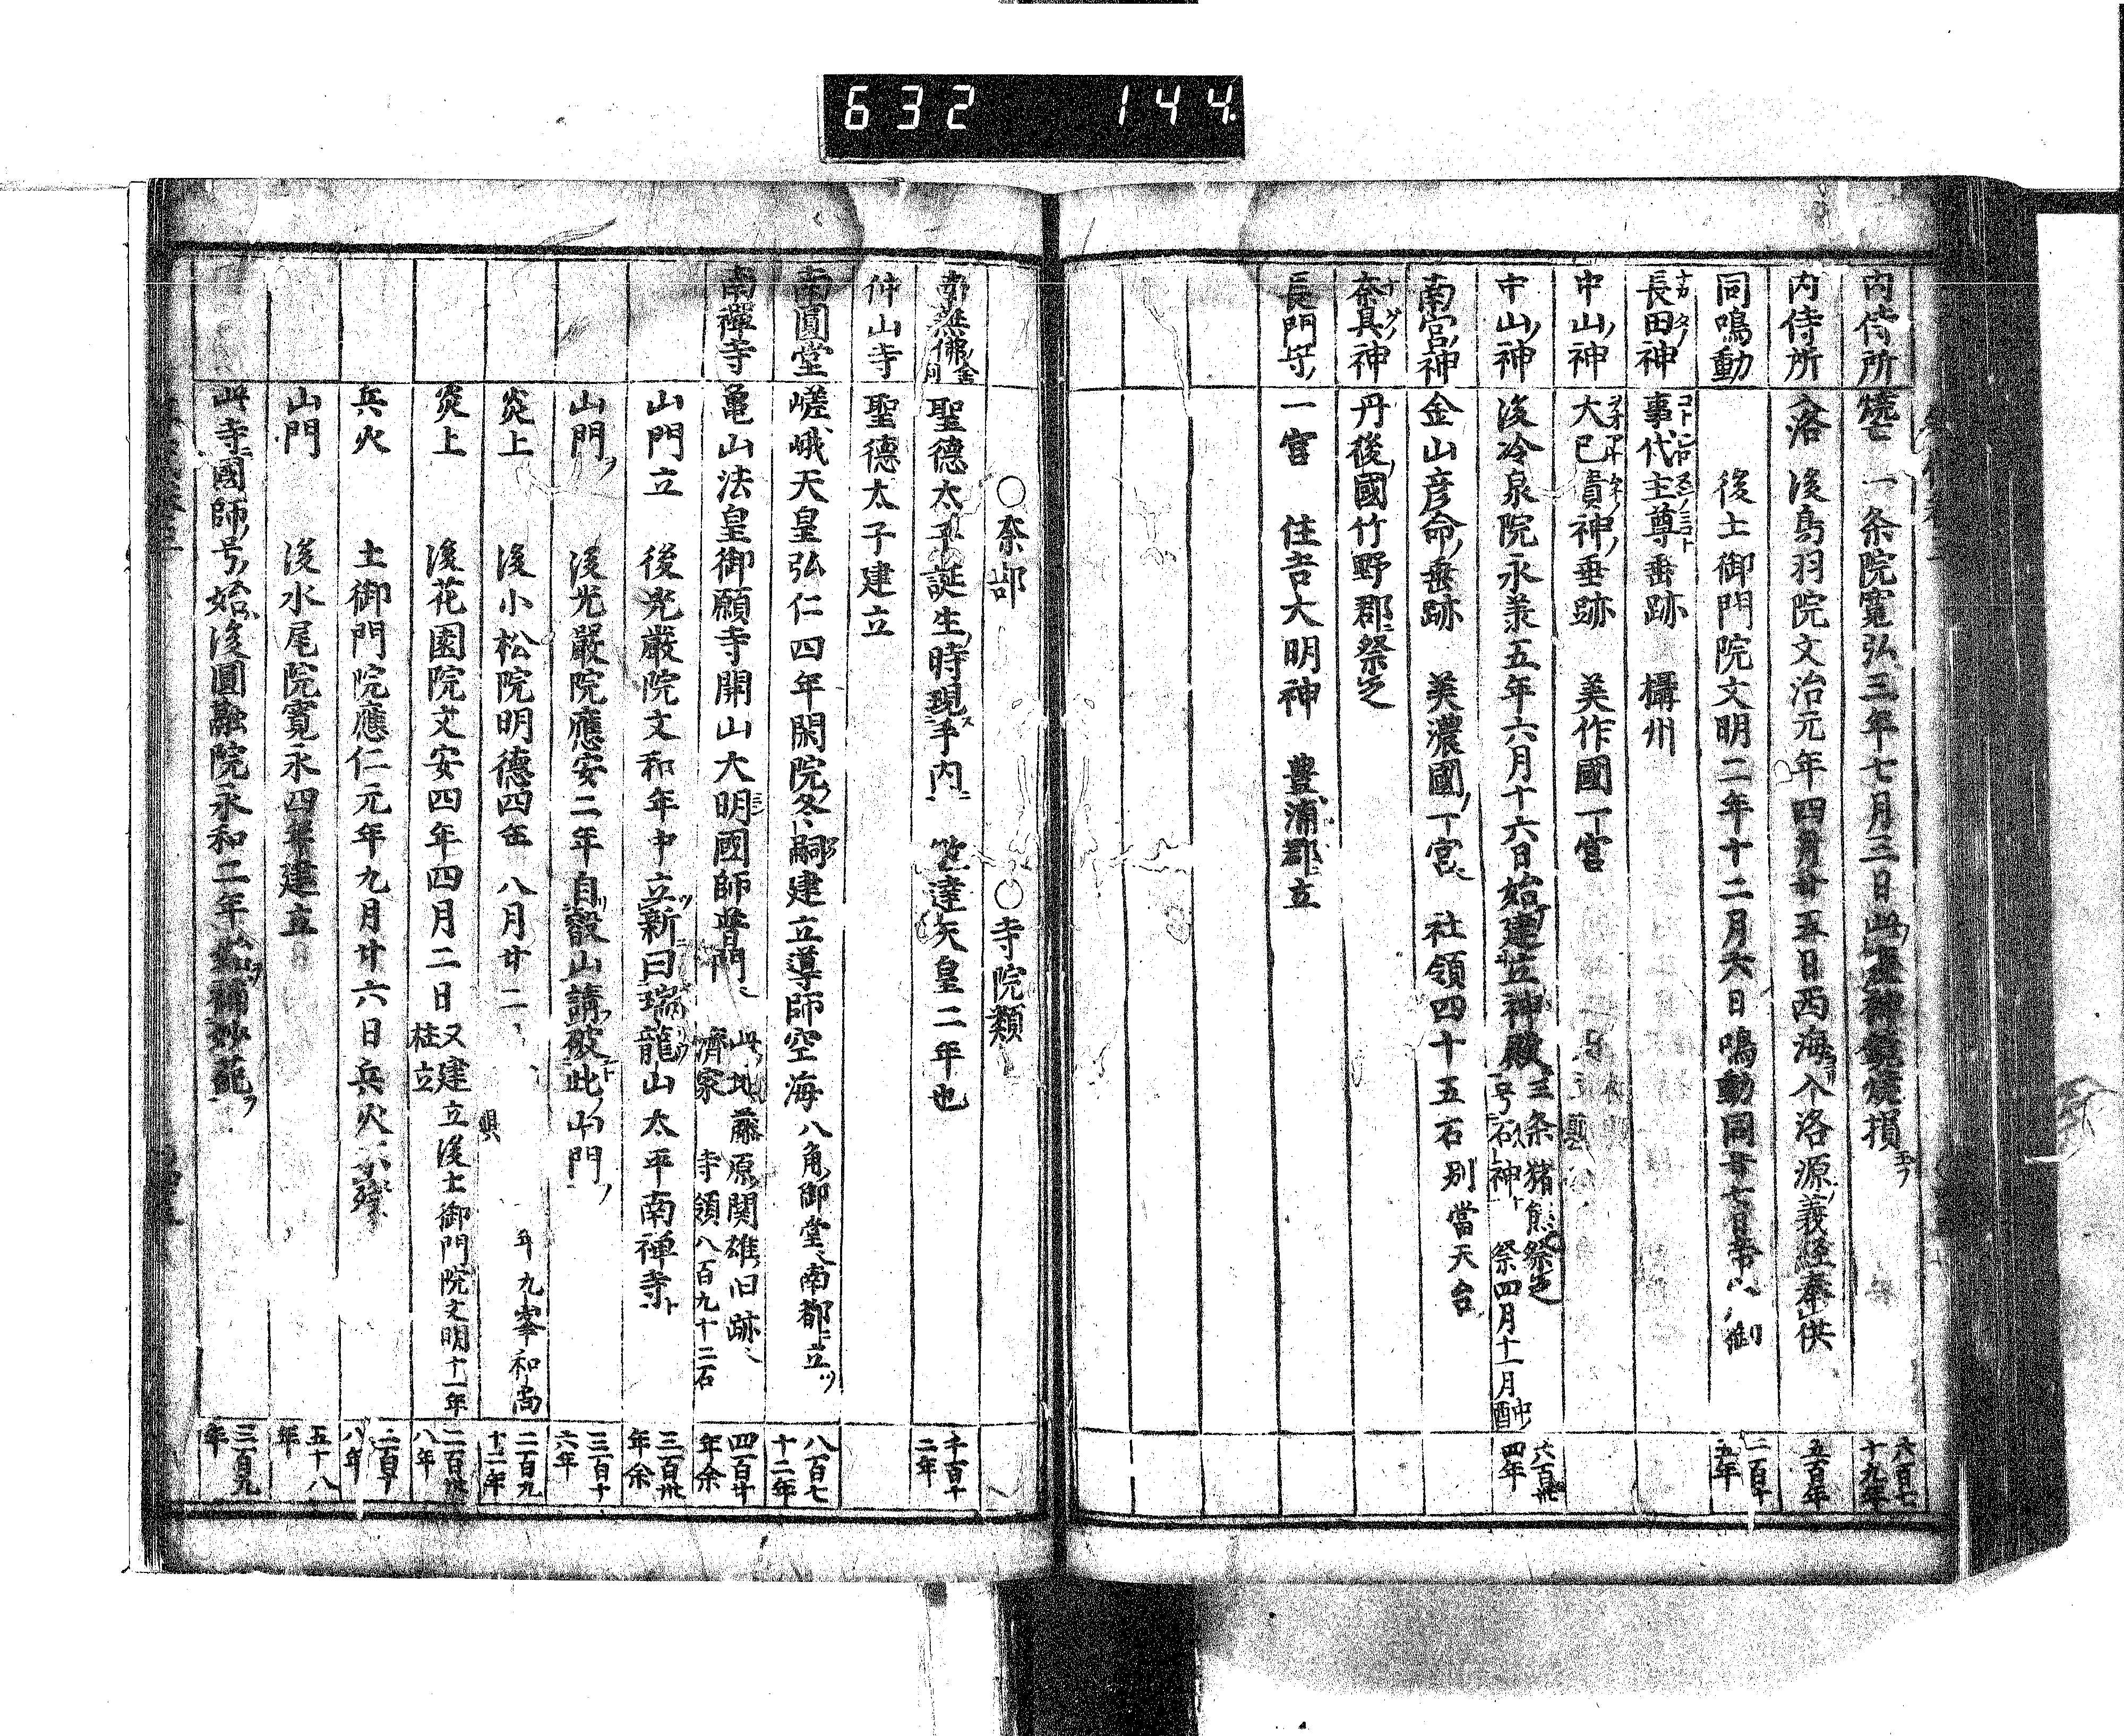 632 144
内侍所 焼亡 一条院寛弘三年七月三日此 神鏡焼損 六百七十九年
内侍所 入洛 後鳥羽院文治元年四月廿五日西海ヨリ入洛源義経奉供 五百年
同鳴動 後土御門院文明二年十二月六日鳴動同廿七日 二百十五年
長田神 事代主尊垂跡 攝州
中山神 大已貴神垂跡 美作國一宮
中山神 後冷泉院永羕五年六月十六日始建立神殿 三条猪熊祭之 号石神 祭四月十一月中酉 六百卅四年
南宮神 金山彦命垂跡 美濃國一宮 社領四十五石別當天台
奈具神 丹後國竹野郡祭之
長門守 一宮 住吉大明神 豊浦郡立
○奈部 ○寺院類
南無佛舎利 聖德太子誕生時現手内 敏達天皇二年也 千百十二年
仲山寺 聖德太子建立
南圓堂 嵯峨天皇弘仁四年閑院冬嗣建立導師空海 八角御堂南都立 八百七十二年
南禪寺 亀山法皇御願寺開山大明國師普門 此地藤原関雄旧跡 濟家 寺領八百九十二石 四百廿年余
山門立 後光厳院文和年中立新曰瑞龍山太平南禅寺 三百卅年余
山門 後光嚴院應安二年自叡山請破此山門 三百十六年
炎上 後小松院明德四年八月廿二 二百九十二年
炎上 後花園院文安四年四月二日 又建立後土御門院文明十一年柱立 二百卅八年
兵火 土御門院應仁元年九月廿六日兵火 二百十八年
山門 後水尾院寛永四年建立 五十八年
此寺國師号始後圓融院永和二年 三百九年